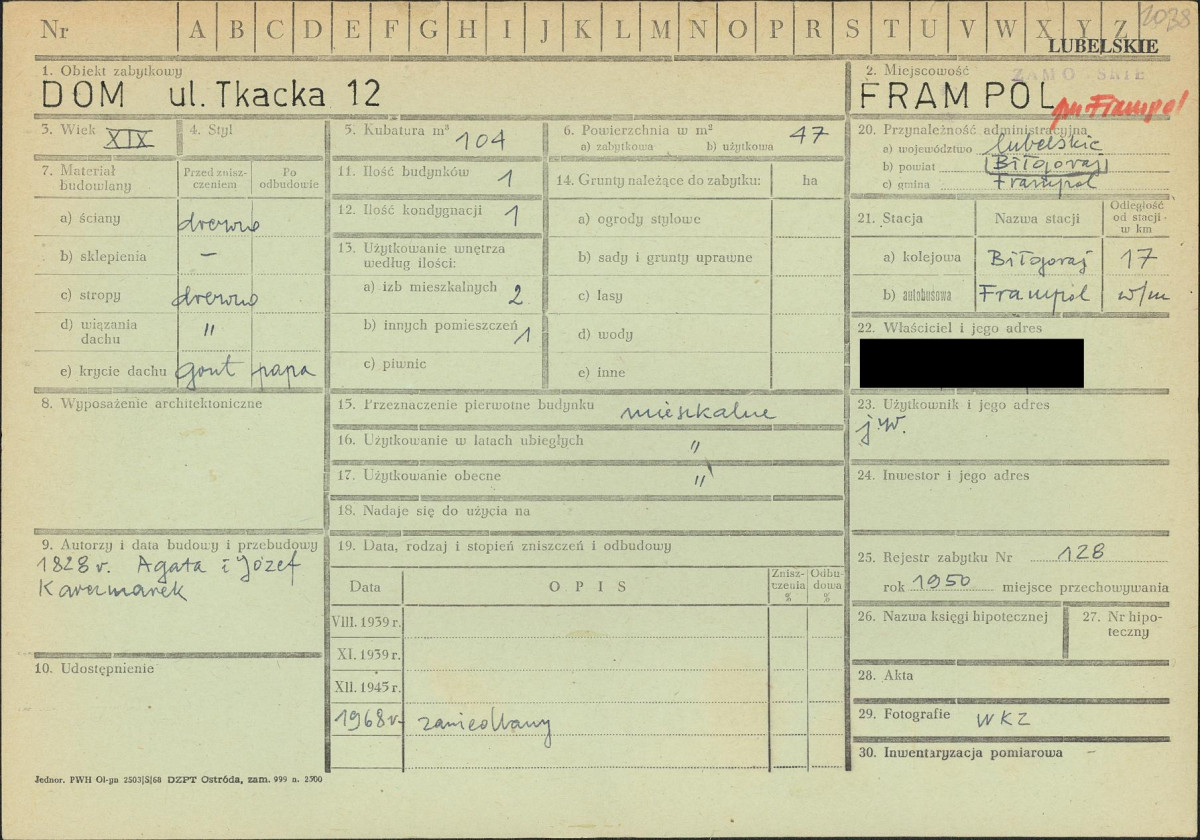 Nr A B C D E F G H I J K L M N O P R S T U V W X Y Z 2038
LUBELSKIE
1. Obiekt zabytkowy
DOM ul. Tkacka 12
2. Miejscowość
ZAMO SKIE
FRAMPOL gm Frampol
3. Wiek XIX
4. Styl
5. Kubatura m³ 104
6. Powierzchnia w m²
a) zabytkowa b) użytkowa 47
20. Przynależność administracyjna
a) województwo lubelskie
b) powiat Biłgoraj
c) gmina Frampol
7. Materiał budowlany
Przed zniszczeniem
Po odbudowie
a) ściany drewno
b) sklepienia –
c) stropy drewno
d) wiązania dachu "
e) krycie dachu gont papa
11. Ilość budynków 1
12. Ilość kondygnacji 1
13. Użytkowanie wnętrza
według ilości:
a) izb mieszkalnych 2
b) innych pomieszczeń 1
c) piwnic
14. Grunty należące do zabytku: ha
a) ogrody stylowe
b) sady i grunty uprawne
c) lasy
d) wody
e) inne
21. Stacja Nazwa stacji Odległość od stacji w km
a) kolejowa Biłgoraj 17
b) autobusowa Frampol w/m
22. Właściciel i jego adres
8. Wyposażenie architektoniczne
15. Przeznaczenie pierwotne budynku mieszkalne
16. Użytkowanie w latach ubiegłych "
17. Użytkowanie obecne "
18. Nadaje się do użycia na
23. Użytkownik i jego adres
j.w.
24. Inwestor i jego adres
9. Autorzy i data budowy i przebudowy
1828 r. Agata i Józef
Karczmarek
10. Udostępnienie
19. Data, rodzaj i stopień zniszczeń i odbudowy
Data OPIS Zniszczenia % Odbudowa %
VIII. 1939 r.
XI. 1939 r.
XII. 1945 r.
1968 r. zaniedbany
25. Rejestr zabytku Nr 128
rok 1950 miejsce przechowywania
26. Nazwa księgi hipotecznej
27. Nr hipoteczny
28. Akta
29. Fotografie WKZ
30. Inwentaryzacja pomiarowa –
Jednor. PWH Ol-gn 2503|S|68 DZPT Ostróda, zam. 999 n. 2500